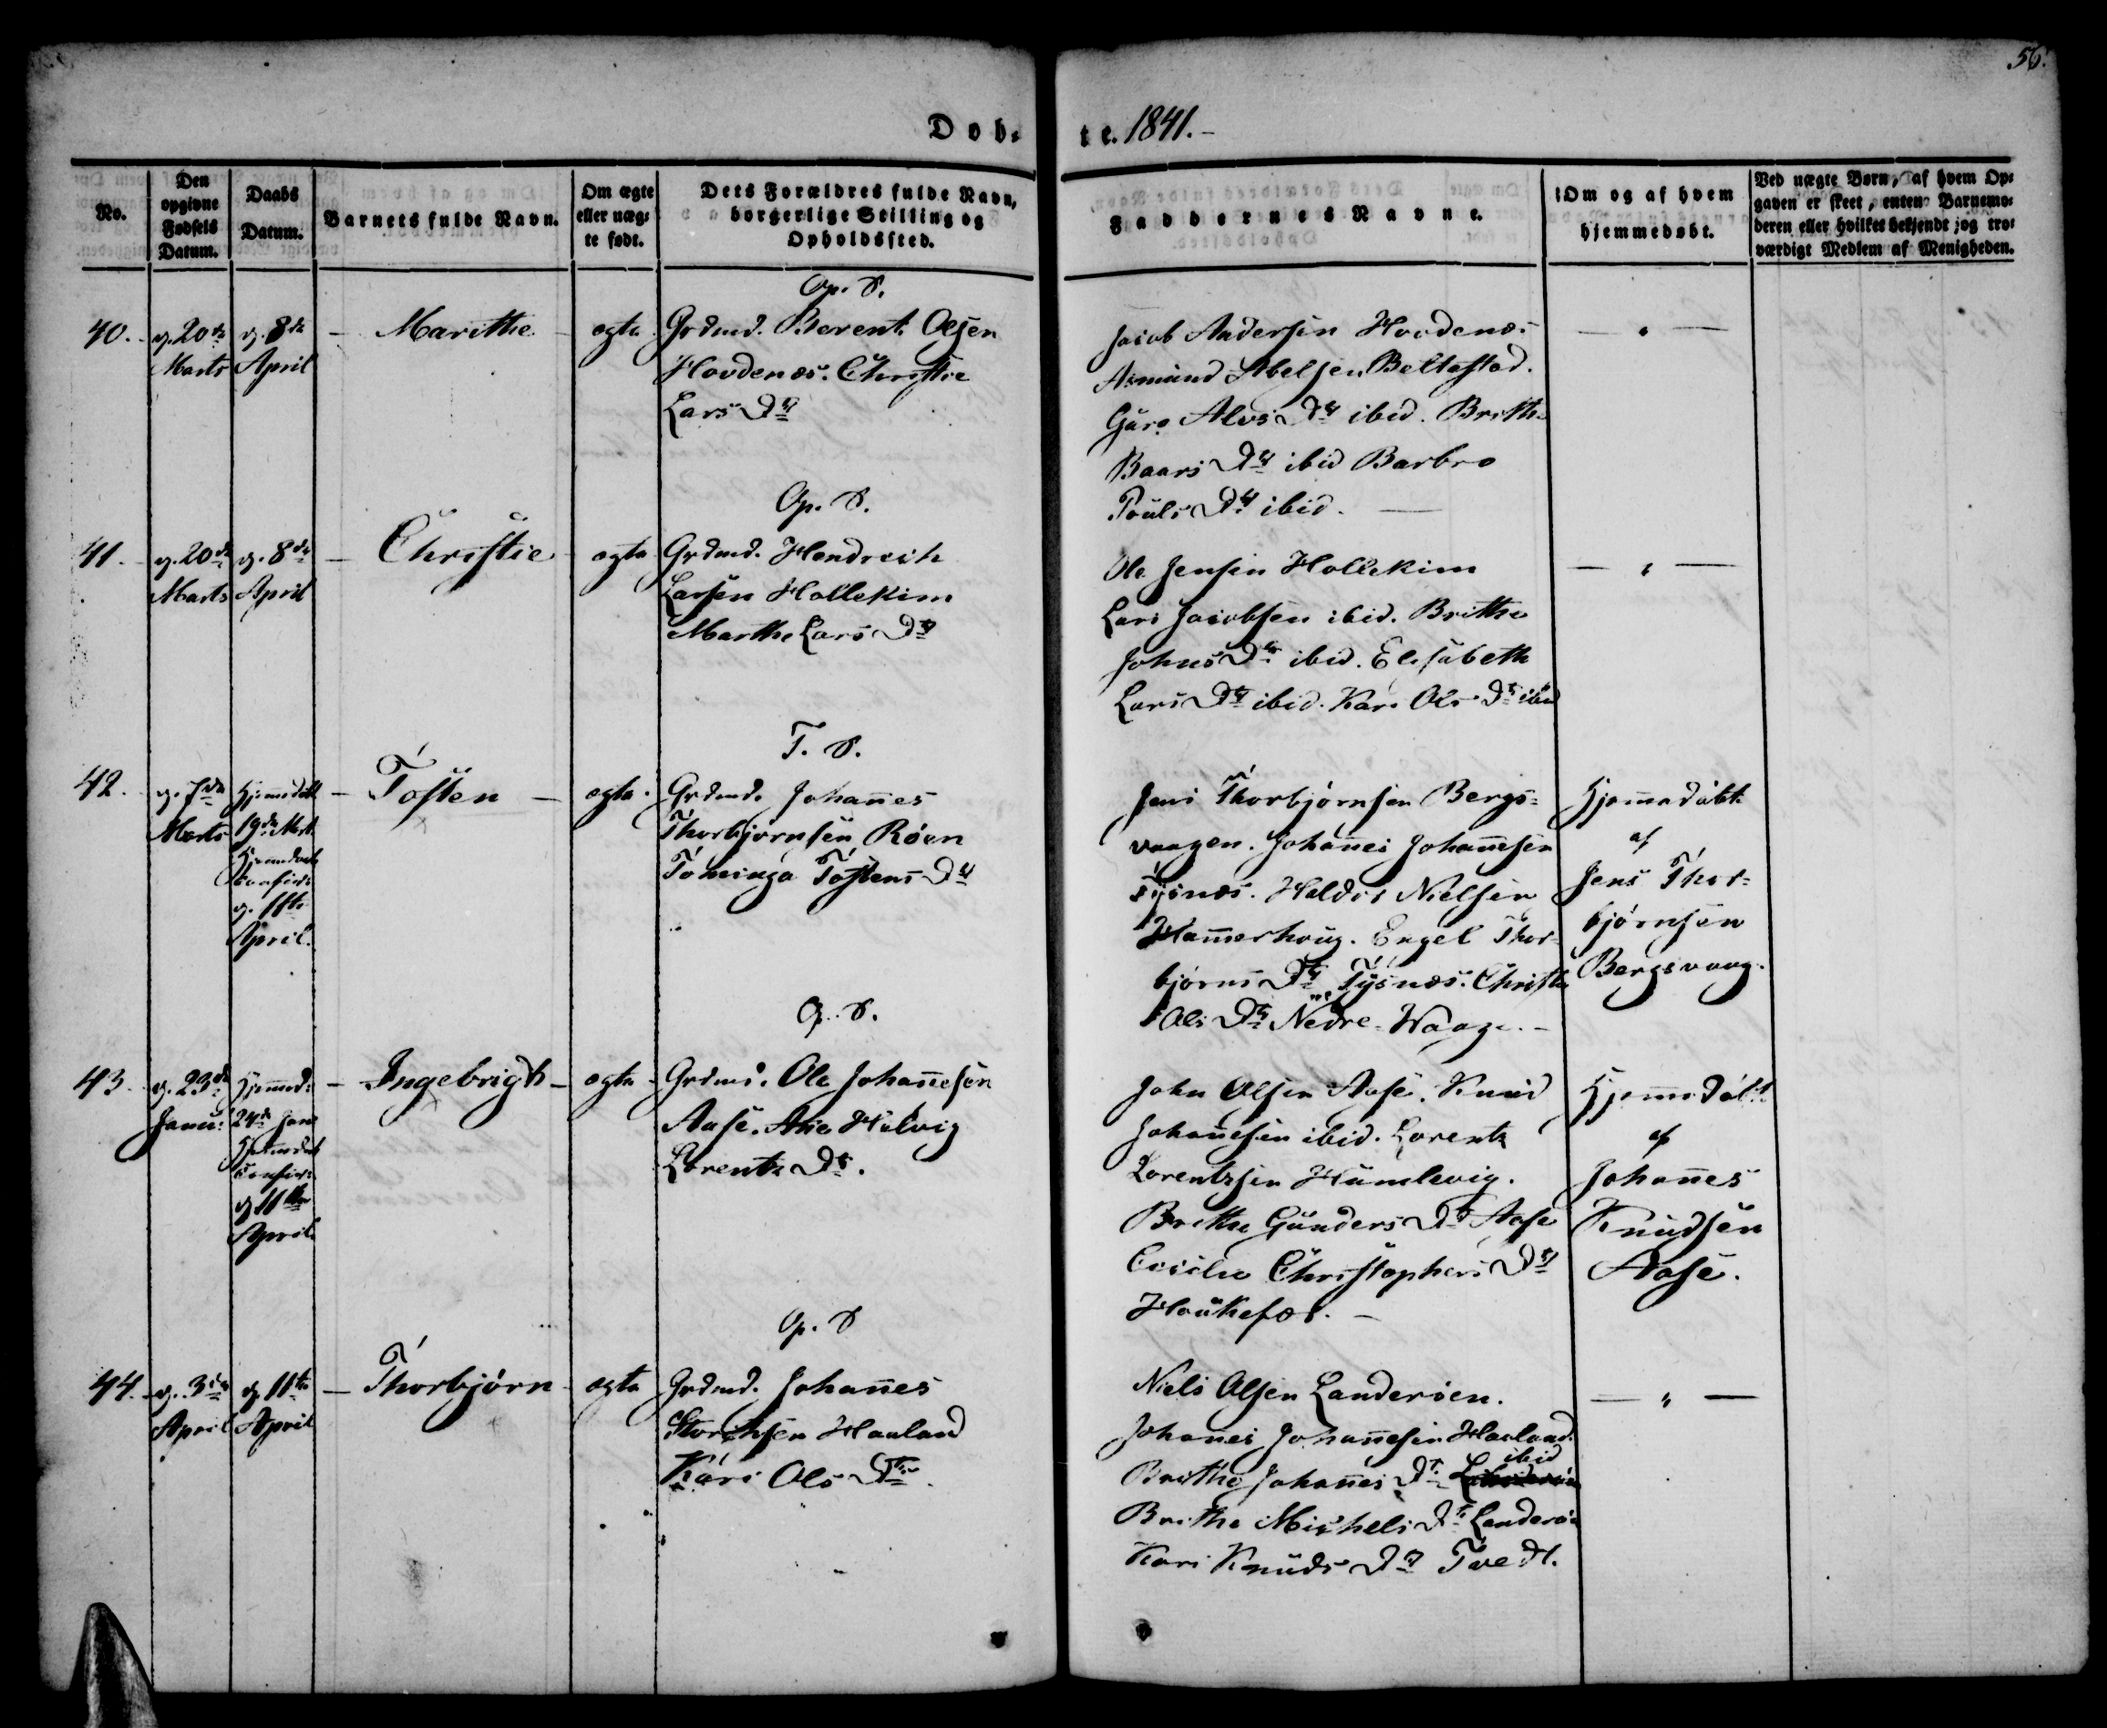 56.
Døb-
te. 1841.-
No.
Den
opgivne
Fødsels
Datum.
Daabs
Datum.
Barnets fulde Navn.
Om ægte
eller uæg-
te født.
Dets Forældres fulde Navn,
borgerlige Stilling og
Opholdssted.
Faddernes Navne.
Om og af hvem
hjemmedøbt.
Ved uægte Børn, af hvem Op-
gaven er skeet, enten Barnemo-
deren eller hvilket bekjendt og tro-
værdigt Medlem af Menigheden.
Op. S.
40.
d. 20de
Marts
d. 8de
April
- Marithe -
ægte
Grdmd. Berent Olsen
Hovdenæs. Christie
Lars Dtr
Jacob Andersen Hovdenæs
Asmund Abelsen Beltestad.
Guro Alvs Dtr ibid. Brithe
Baars Dtr ibid Barbro
Pouls Dtr ibid. —
— " —
Op. S.
41.
d. 20de
Marts
d. 8de
April
- Christie -
ægte
Grdmd. Hendrich
Larsen Hollekim
Marthe Lars Dtr
Ole Jensen Hollekim
Lars Jacobsen ibid. Brithe
Johns Dtr ibid. Elisabeth
Lars Dtr ibid. Kari Ols Dtr ibid
— " —
T. S.
42.
d. 7de
Marts
Hjemmedøbt
19de Mrt.
Hjemmedaab
confir:
d. 11te
April.
- Tosten -
ægte.
Grdmd. Johannes
Thorbjørnsen Röen
Tosten Dtr
Jens Thorbjørnsen Bergs-
vaagen. Johannes Johannesen
Tysnæs. Haldor Nielsen
Hammerhoug. Engel Thor-
bjørns Dtr Tysnæs. Christie
Ols Dtr Nedre-Waage. -
Hjemmedøbt
af
Jens Thor-
bjørnsen
Bergsvaag.
Op. S.
43.
d. 23de
Januar
Hjemmed:
24de Jan.
Hjemmedaab
confir:
d. 11te
April
- Ingebrigt -
ægte -
Grdmd. Ole Johannesen
Aase. Ane Helvig
Lorents Dtr.
John Olsen Aase. Knud
Johannesen ibid. Lorents
Lorentssen Humlevig.
Brithe Gunders Dtr Aase
Cecilie Christophers Dtr
Houkefær. -
Hjemmedøbt
af
Johannes
Knudsen
Aase.
Op. S
44.
d. 3die
April
d. 11te
April
- Thorbjørn -
ægte
Grdmd. Johannes
Haaland
Kari Ols Dtr.
Niels Olsen Landerøen.
Johannes Johannesen Haaland.
ibid
Brithe Johannes Dtr
Brithe Michels Dtr Landerøen
Kari Knuds Dtr Tvedt.
— " —